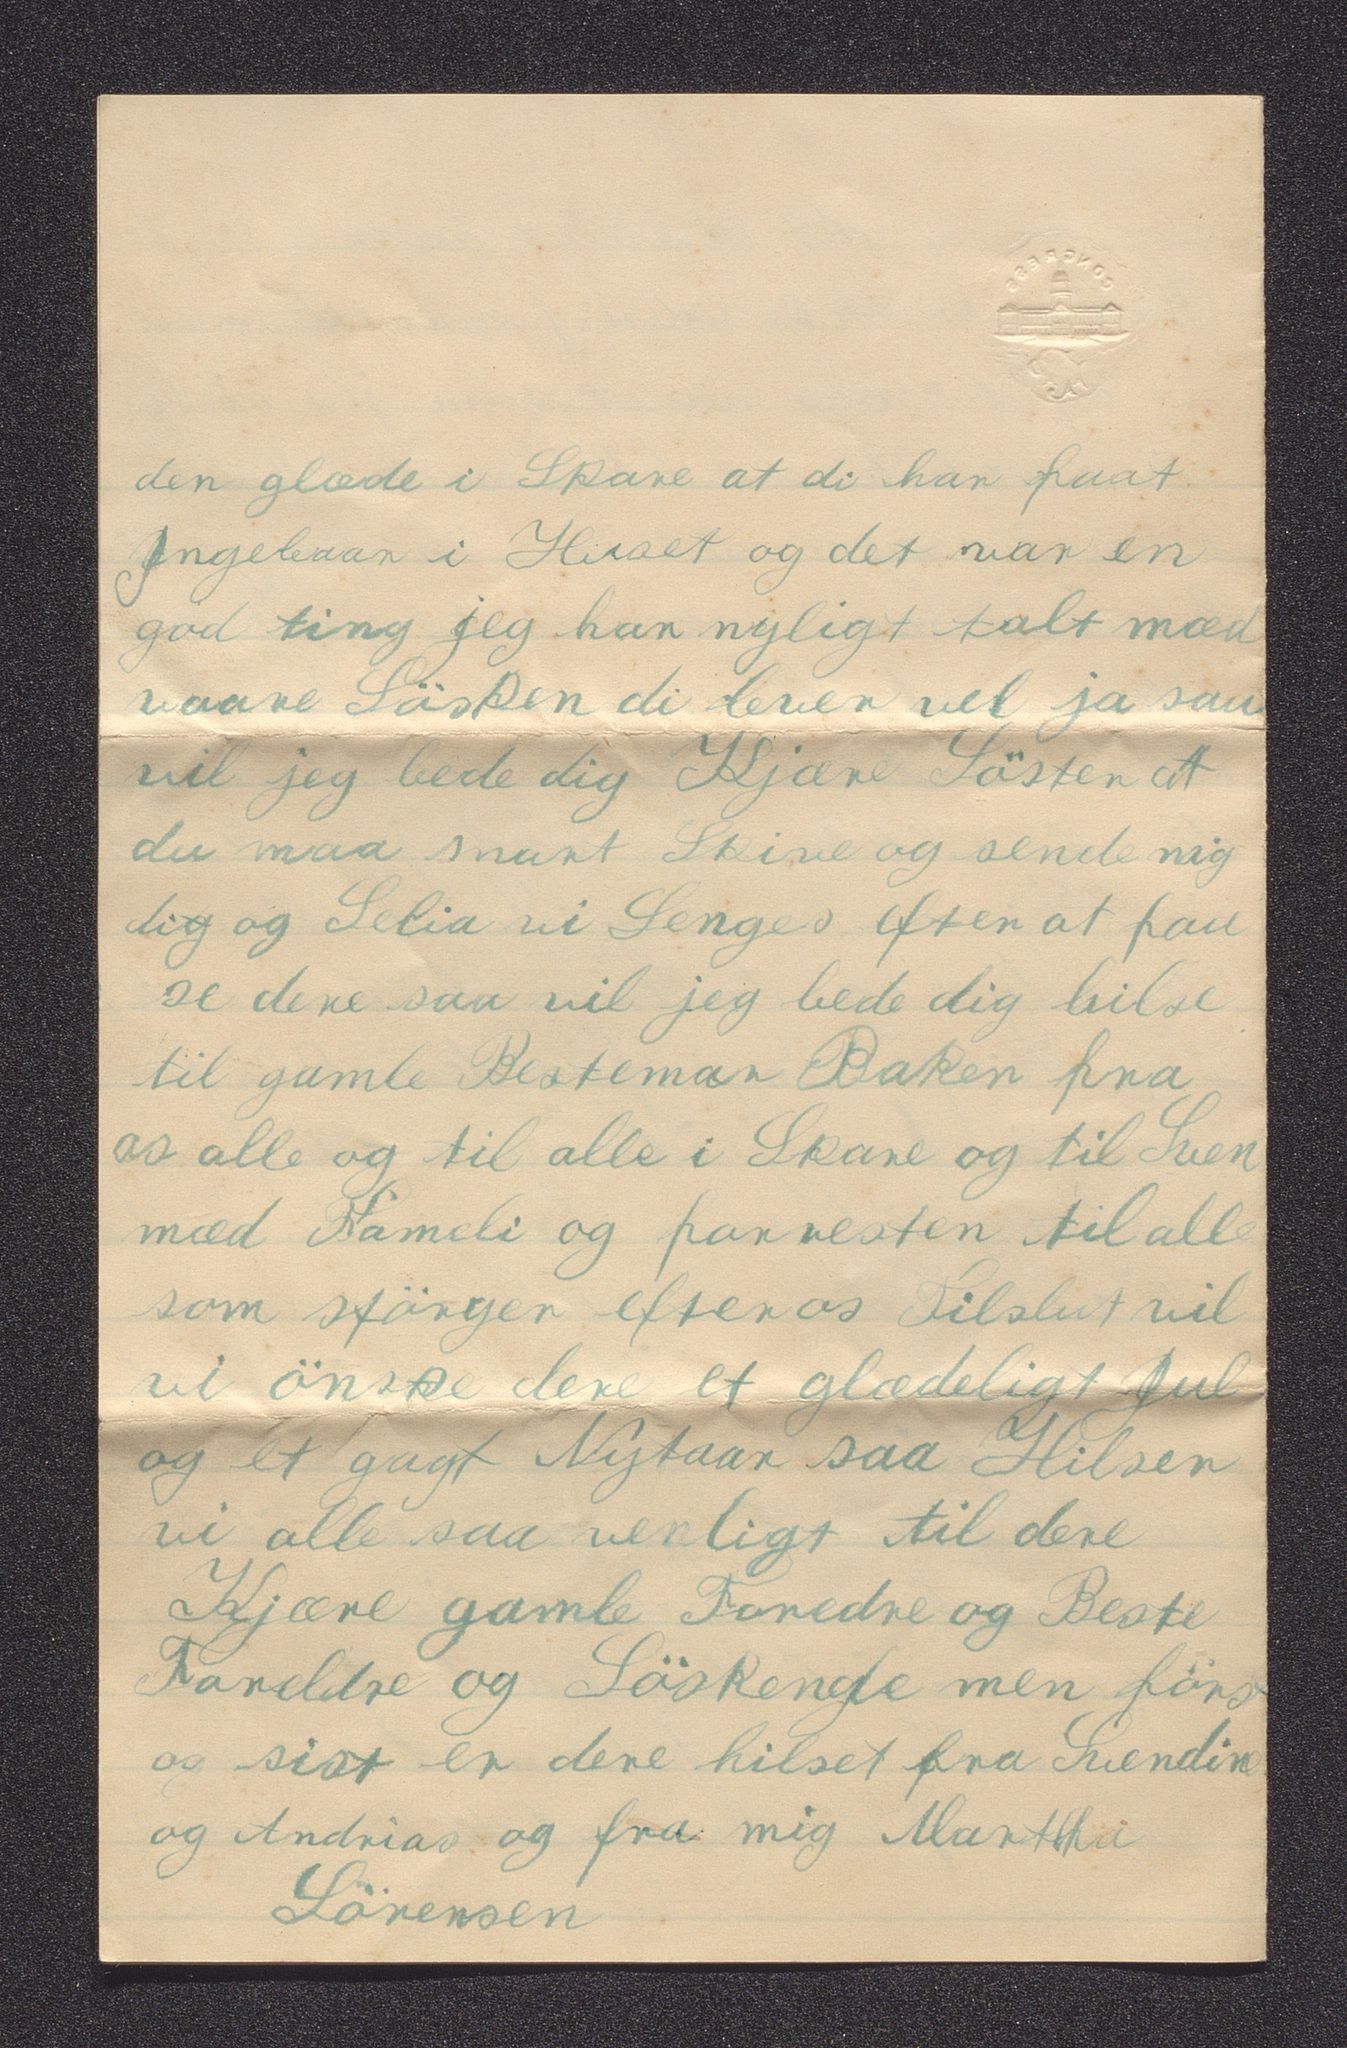 CONGRESS
den glæde i Skare at di har faat
Ingebaar i Huset og det var en
god ting jeg har nyligt talt mæd
vaare Sösken di lever vel ja saa
vil jeg bede dig Kjære Söster at
du maa snart Skive og sende mig
dig og Selia vi Lenges efter at faa
se dere saa vil jeg bede dig hilse
til gamle Bestemar Baken fra
os alle og til alle i Skare og til Sven
mæd Fameli og forresten til alle
som spörger efter os Tilslut vil
vi önske dere et glædeligt Jul
og et gagt Nytaar saa Hilser
vi alle saa venligt til dere
Kjære gamle Foredre og Beste
Foreldre og Söskende men förs
og sist er dere hilset fra Svendine
og Andrias og fra mig Martha
Sörensen